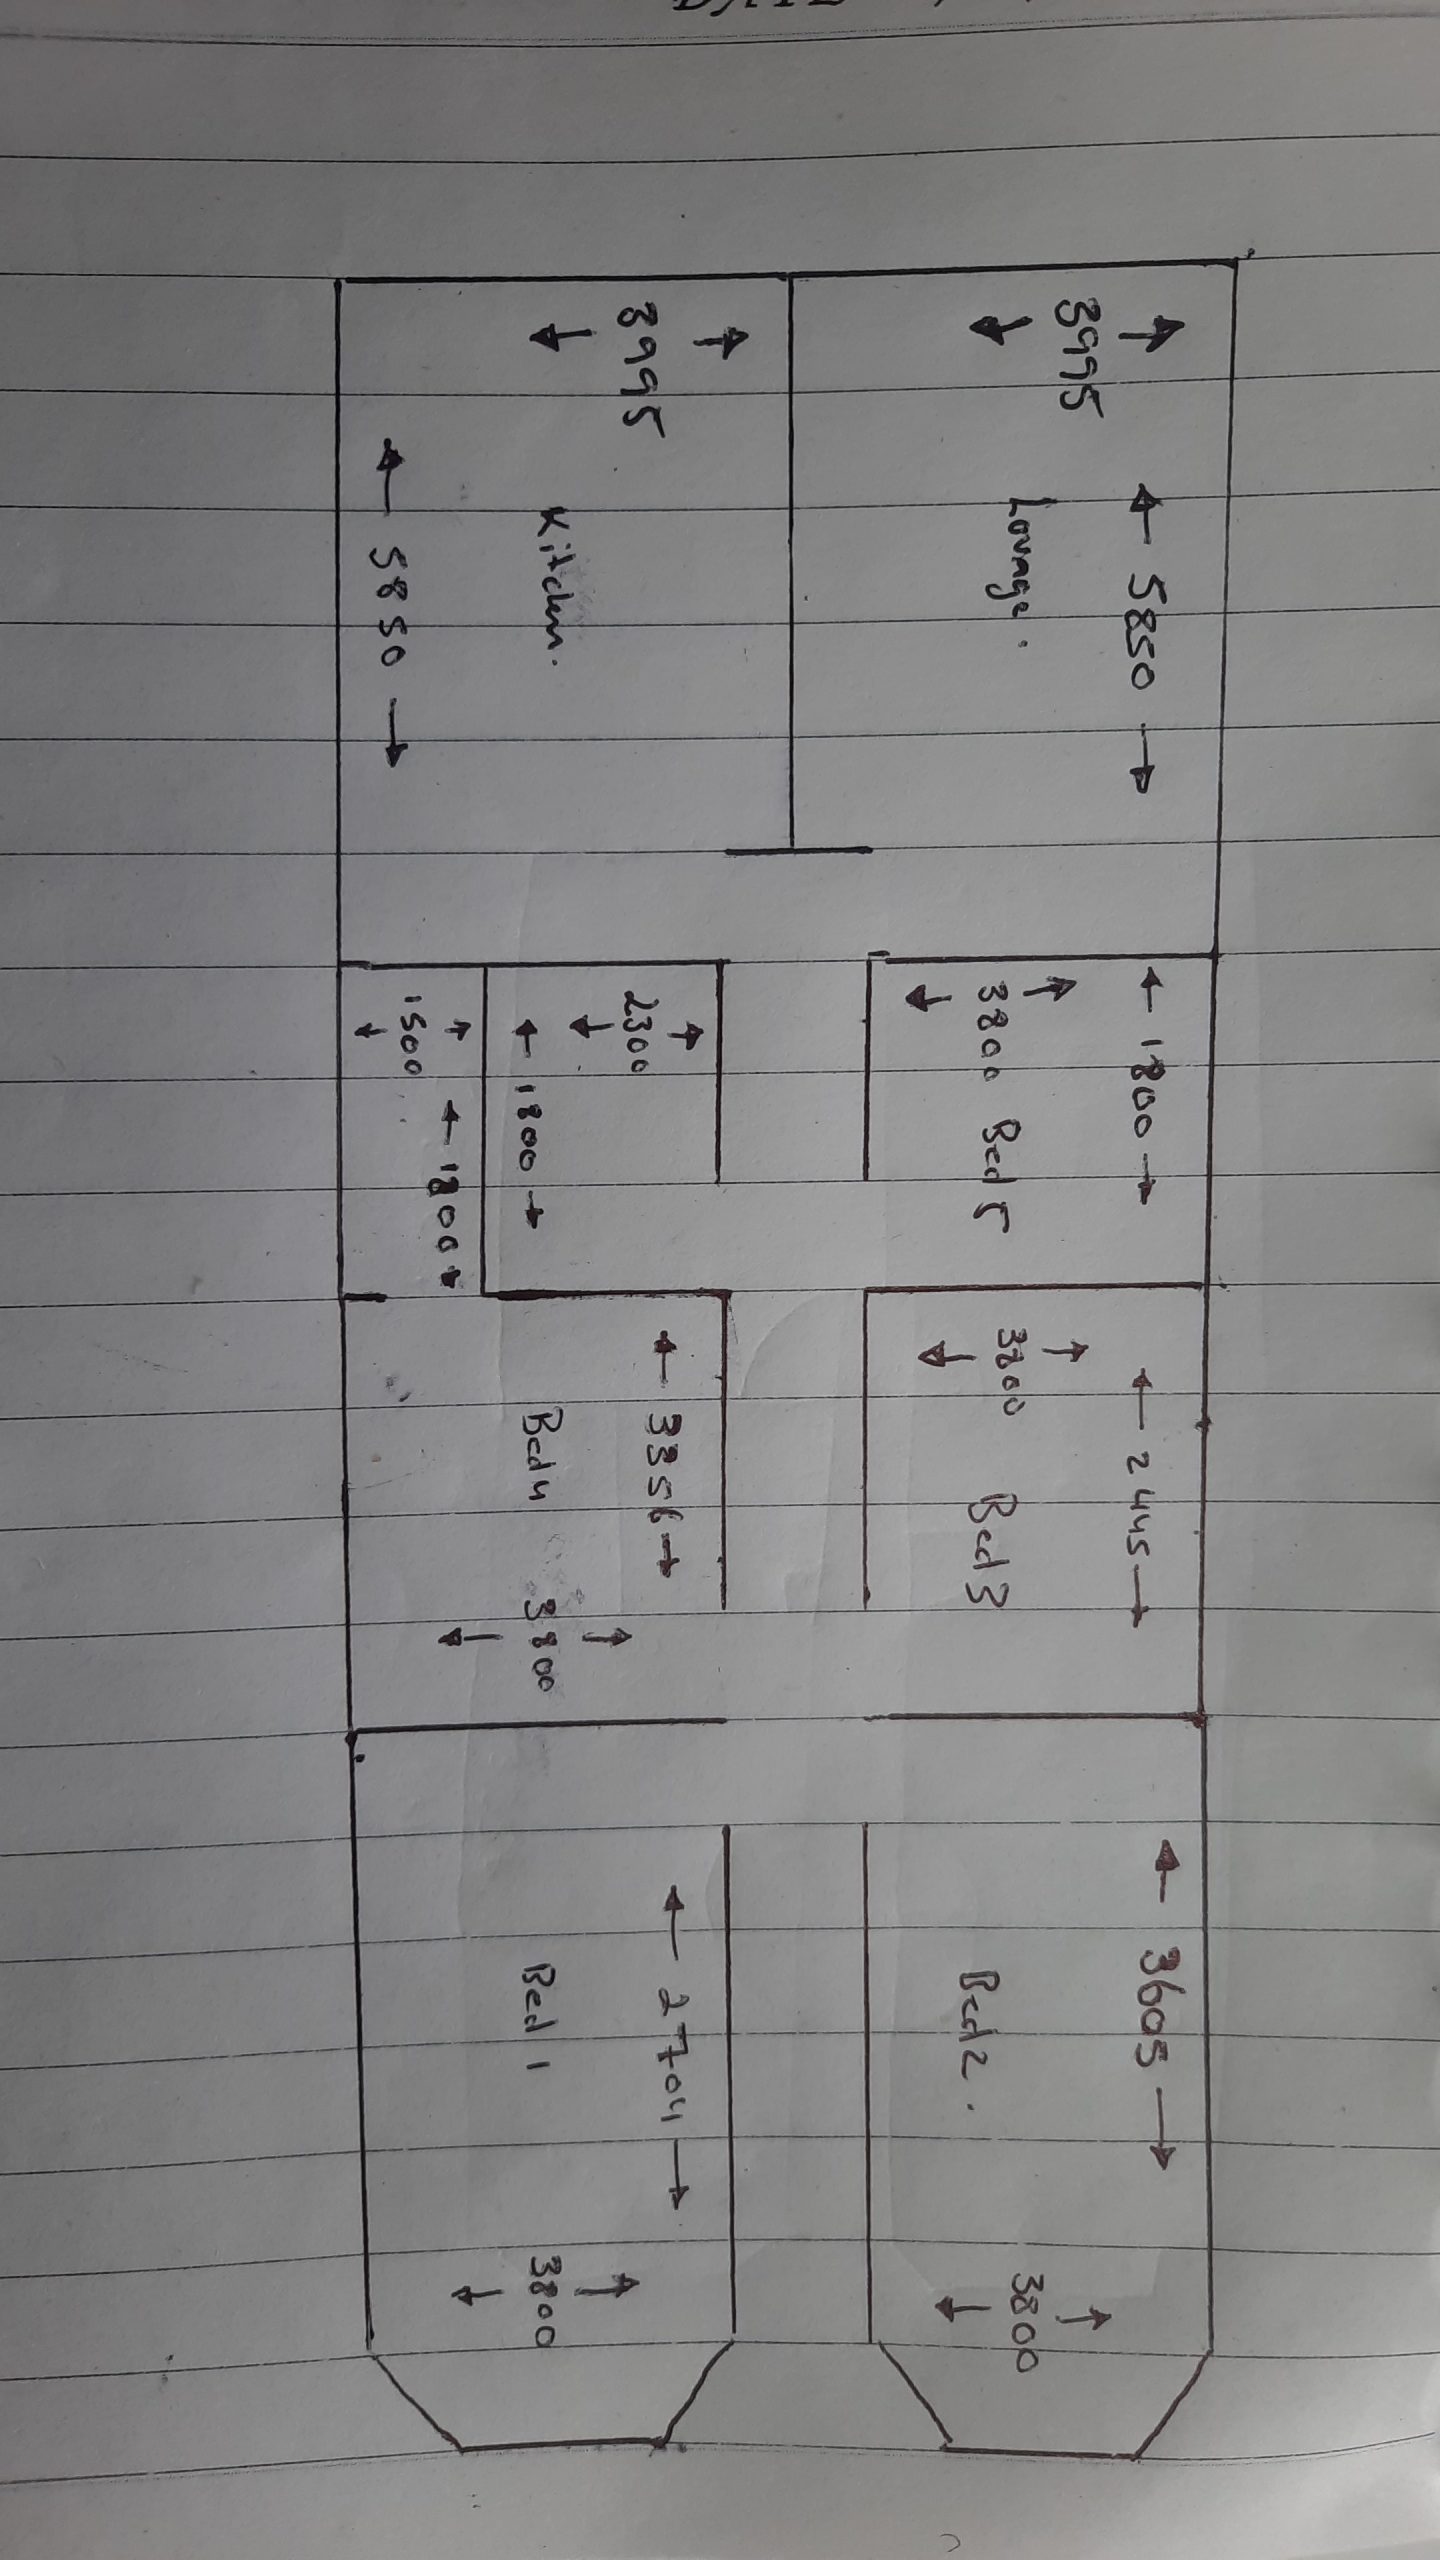 5850
3995
Lounge.
3995
Kitchen.
5850
1800
3800 Bed 5
2300
1800
1500
1800
2445
3800 Bed 3
3356
Bed 4
3800
3605
Bed 2.
3800
2704
Bed 1
3800